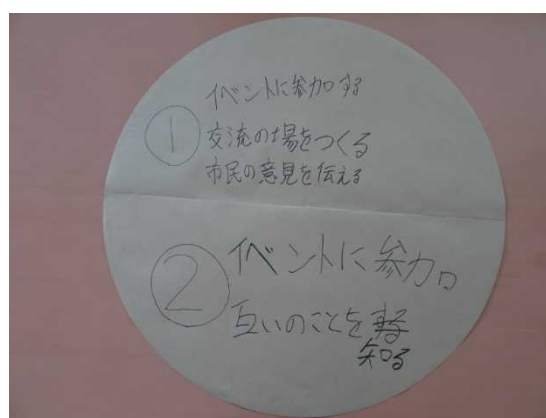 ① イベントに参加する
交流の場をつくる
市民の意見を伝える
② イベントに参加
互いのことを
知る